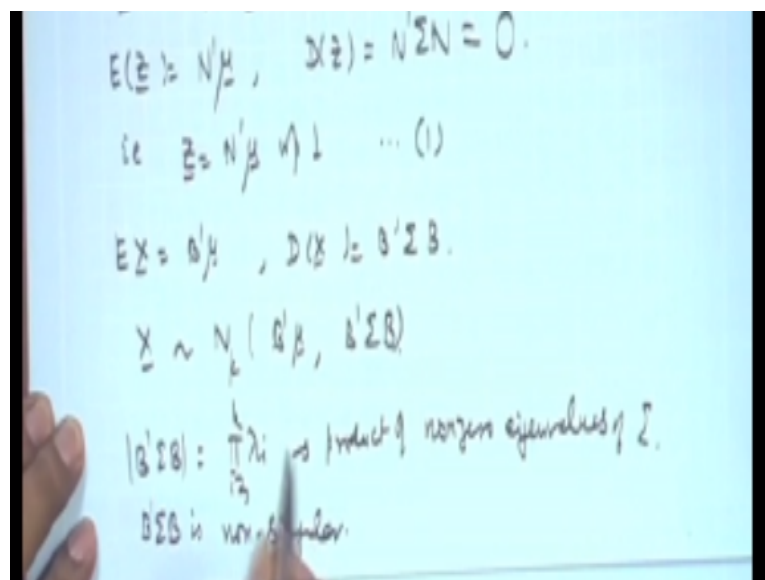 E(Z) = N'μ, D(Z) = N'ΣN = 0.
ie Z = N'μ wp 1 ... (1)
EX = B'μ, D(X) = B'ΣB.
X ~ N_k (B'μ, B'ΣB)
|B'ΣB| = π^k_{i=1} λi → product of nonzero eigenvalues of Σ.
B'ΣB is